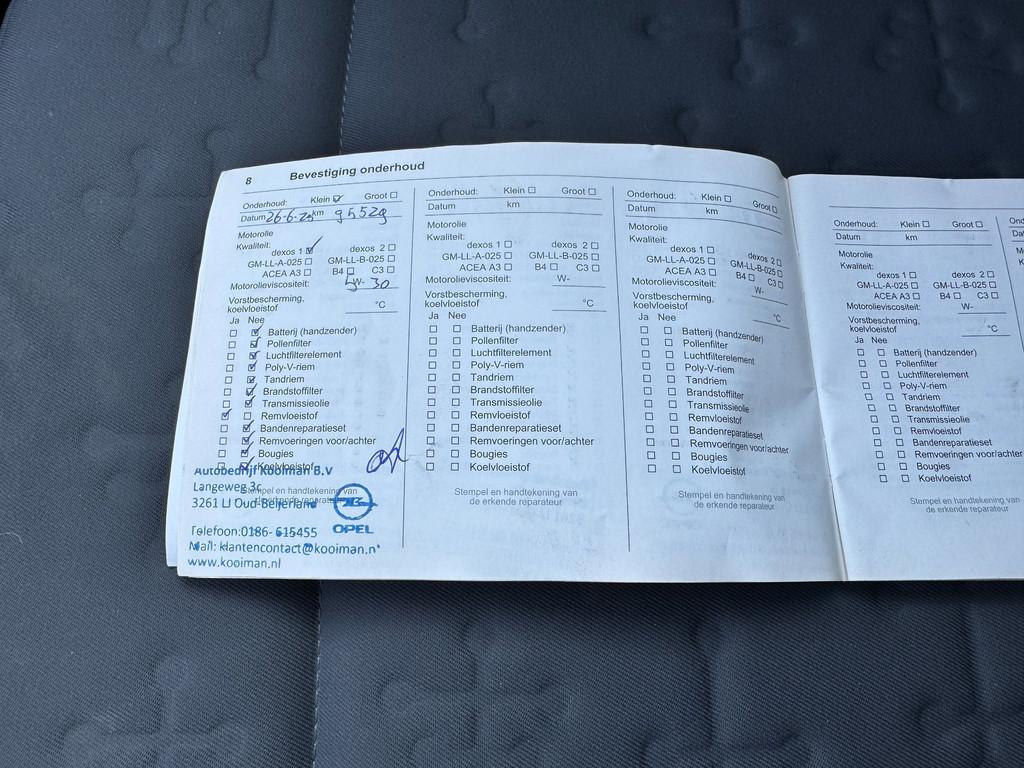 8 Bevestiging onderhoud
Onderhoud: Klein Groot
Datum 26-6- km
Motorolie
Kwaliteit:
dexos 1 dexos 2
GM-LL-A-025 GM-LL-B-025
ACEA A3 B4 C3
Motorolieviscositeit: 5W- 30
Vorstbescherming,
koelvloeistof °C
Ja Nee
Batterij (handzender)
Pollenfilter
Luchtfilterelement
Poly-V-riem
Tandriem
Brandstoffilter
Transmissieolie
Remvloeistof
Bandenreparatieset
Remvoeringen voor/achter
Bougies
Koelvloeistof
Autobedrijf Kooiman B.V
Langeweg 3c
Stempel en handtekening van
3261 LJ Oud-Beijerland
de erkende reparateur
OPEL
Telefoon:0186-615455
Mail: klantencontact@kooiman.n
www.kooiman.nl
Onderhoud: Klein Groot
Datum km
Motorolie
Kwaliteit:
dexos 1 dexos 2
GM-LL-A-025 GM-LL-B-025
ACEA A3 B4 C3
Motorolieviscositeit: W-
Vorstbescherming,
koelvloeistof °C
Ja Nee
Batterij (handzender)
Pollenfilter
Luchtfilterelement
Poly-V-riem
Tandriem
Brandstoffilter
Transmissieolie
Remvloeistof
Bandenreparatieset
Remvoeringen voor/achter
Bougies
Koelvloeistof
Stempel en handtekening van
de erkende reparateur
Onderhoud: Klein Groot
Datum km
Motorolie
Kwaliteit:
dexos 1 dexos 2
GM-LL-A-025 GM-LL-B-025
ACEA A3 B4 C3
Motorolieviscositeit: W-
Vorstbescherming,
koelvloeistof °C
Ja Nee
Batterij (handzender)
Pollenfilter
Luchtfilterelement
Poly-V-riem
Tandriem
Brandstoffilter
Transmissieolie
Remvloeistof
Bandenreparatieset
Remvoeringen voor/achter
Bougies
Koelvloeistof
Stempel en handtekening van
de erkende reparateur
Onderhoud: Klein Groot
Datum km
Motorolie
Kwaliteit:
dexos 1 dexos 2
GM-LL-A-025 GM-LL-B-025
ACEA A3 B4 C3
Motorolieviscositeit: W-
Vorstbescherming,
koelvloeistof °C
Ja Nee
Batterij (handzender)
Pollenfilter
Luchtfilterelement
Poly-V-riem
Tandriem
Brandstoffilter
Transmissieolie
Remvloeistof
Bandenreparatieset
Remvoeringen voor/achter
Bougies
Koelvloeistof
Stempel en handtekening van
de erkende reparateur